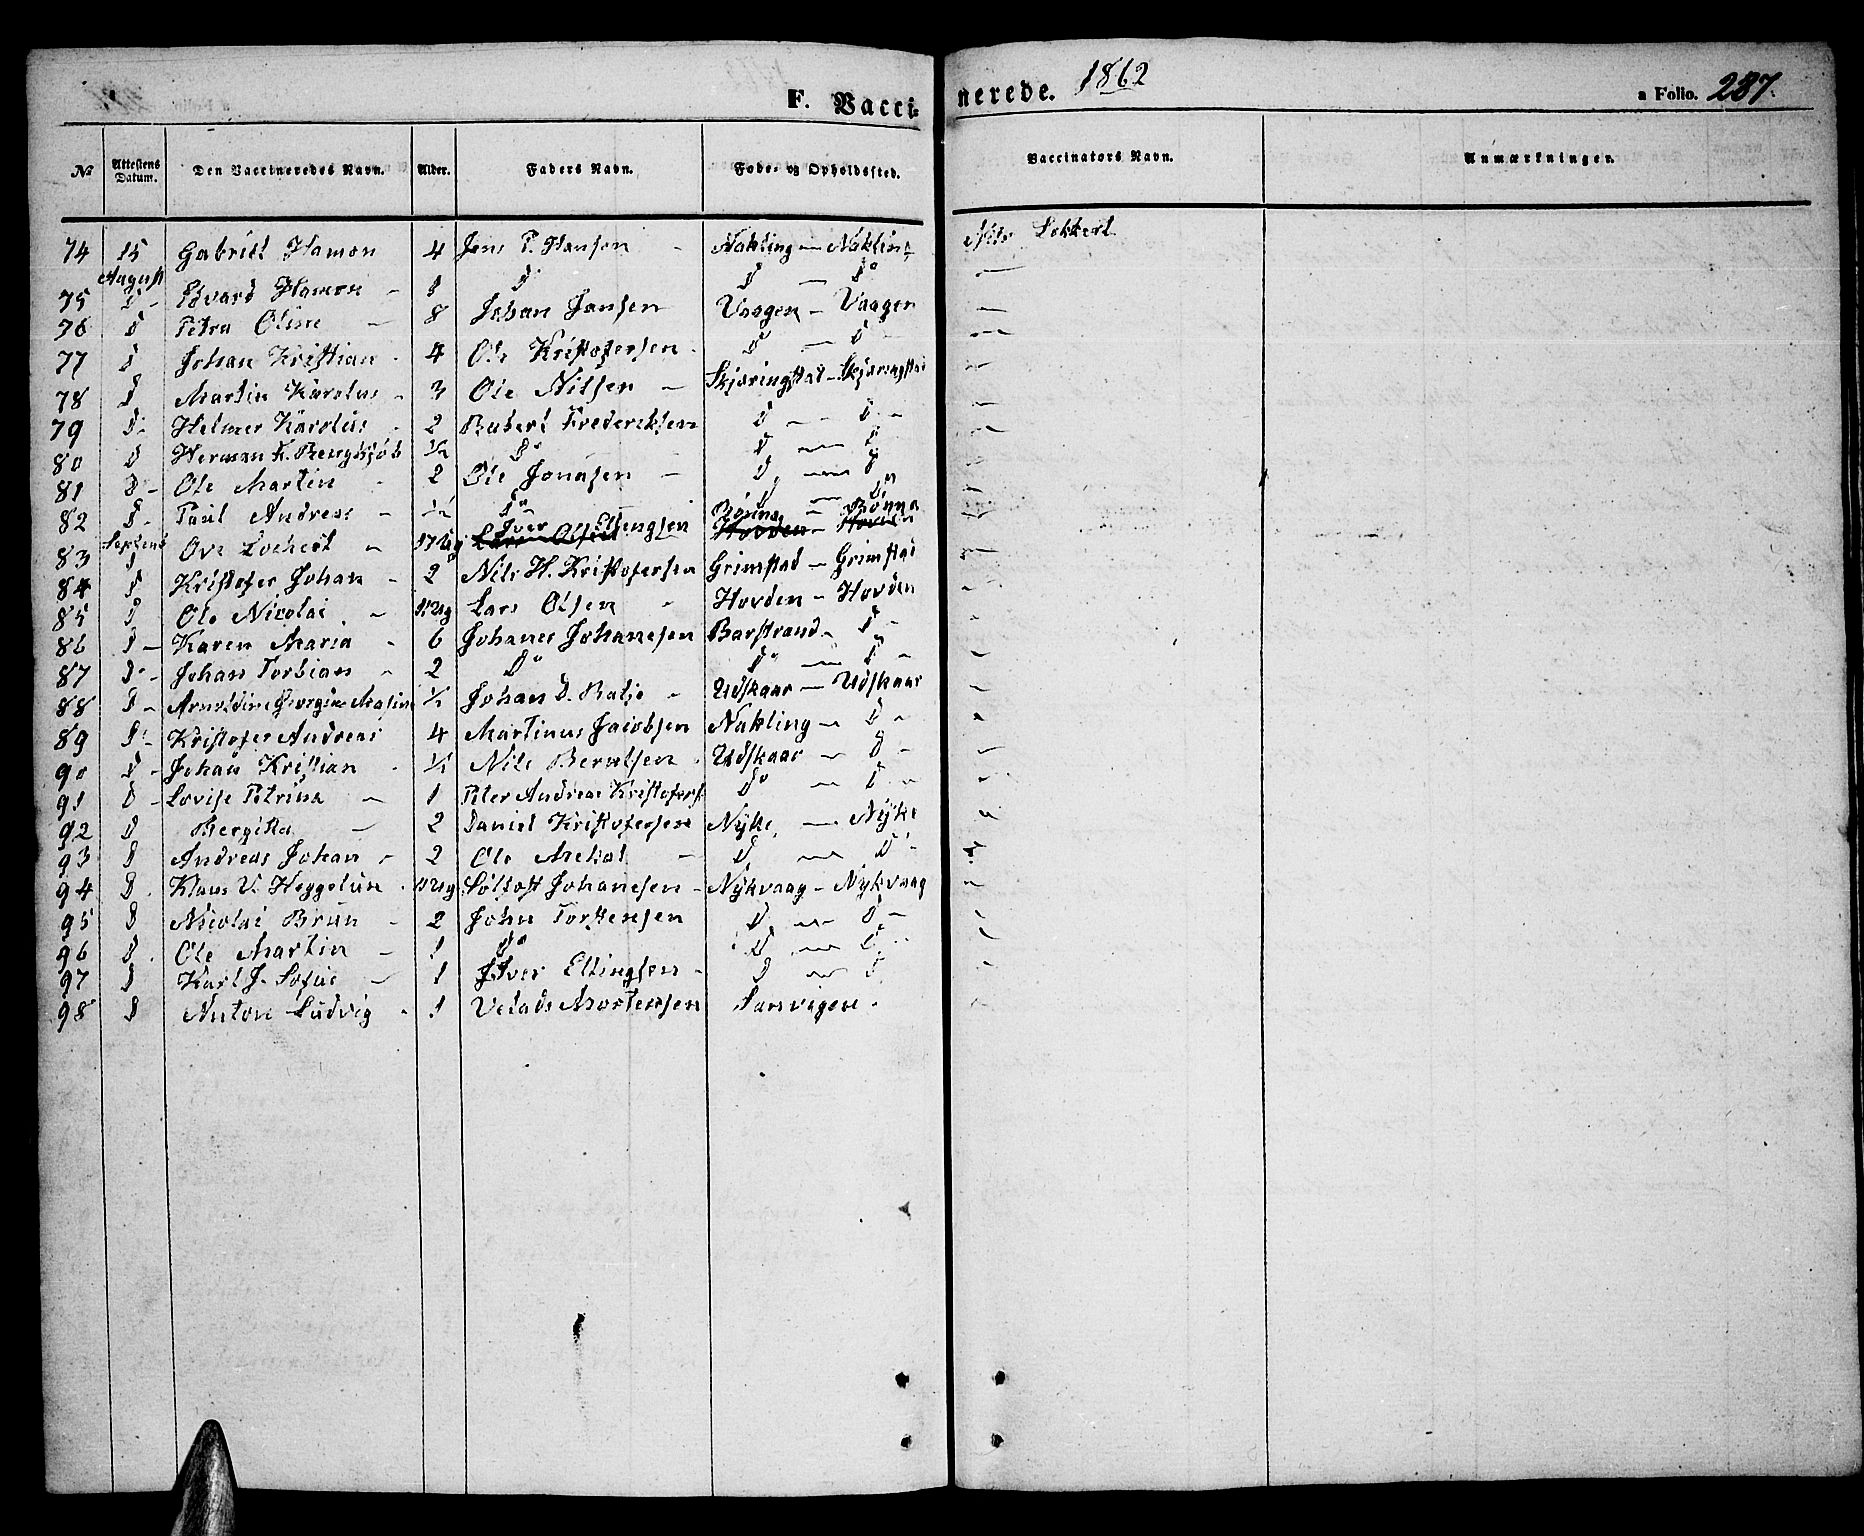 F. Vaccinerede. 1862 a Folio. 287.
No Attestens Datum. Den Vaccineredes Navn. Alder. Faders Navn. Føde- og Opholdssted. Vaccinators Navn. Anmærkninger.
74 15 August Gabriel Hamon 4 Jens P. Hansen - Nakling - Nakling Nils Lokkert
75 D - Edvard Hamon - 1 Do D - Do
76 D Petra Oline - 8 Johan Jansen Vaagen - Vaagen
77 D Johan Kristian - 4 Ole Kristofersen - Do - D
78 D Martin Karolus - 3 Ole Nilsen - Skjæringstad - Skjæringstad
79 D - Helmer Karolus - 2 Robert Frederiksen D - D -
80 D Herman K. 1/2 Do D - D
81 D - Ole Martin - 2 Ole Jonasen - D - D
82 D - Paul Andreas - 1/2 Do D - Do
83 Septemb D Ove Lochert - 17 Ug Lars Olsen Iver Ellengsen Horden - Horden Bønna - Bønna
84 D Kristofer Johan - 2 Nils H. Kristofersen Grimstad - Grimstad
85 D Ole Nicolai - 15 Ug Lars Olsen - Horden - Horden
86 D - Karen Maria - 6 Johanes Johanesen Barstrand - D -
87 D - Johan Torbian - 2 Do Do - D -
88 D - Arnoldine Georgine 1/2 Johan D. Batje - Udskaar - Udskaar
89 D - Kristofer Andreas 4 Martinus Jacobsen Nakling - D -
90 D - Johan Kristian - 1/2 Nils Berntsen - Udskaar - D -
91 D - Lovise Petrina - 1 Peter Andreas Kristofers Do - D -
92 D Bergitta - 2 Daniel Kristofersen Nyke - Nyke
93 D Andreas Johan - 2 Ole - D - D -
94 D. Klaus V. Heggelun - 12 Ug Johanesen - Nykvaag - Nykvaag
95 D Nicolai Brun - 2 John Torstensen D - D -
96 D. Ole Martin - 1 Do D - D
97 D Karl J. Sofus - 1 Iver Ellingsen - D - D
98 D Anton Ludvig - 1 Mortensen